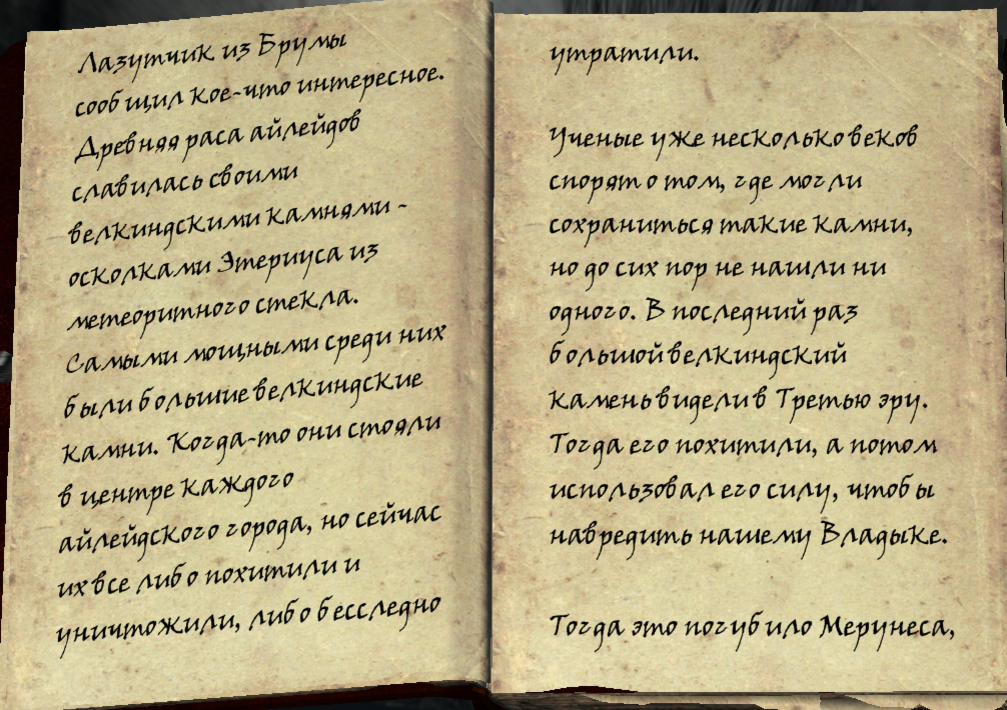 Лазутчик из Брумы
сообщил кое-что интересное.
Древняя раса айлейдов
славилась своими
велкиндскими камнями -
осколками Этериуса из
метеоритного стекла.
Самыми мощными среди них
были большие велкиндские
камни. Когда-то они стояли
в центре каждого
айлейдского города, но сейчас
их все либо похитили и
уничтожили, либо бесследно
утратили.
Ученые уже несколько веков
спорят о том, где могли
сохраниться такие камни,
но до сих пор не нашли ни
одного. В последний раз
большой велкиндский
камень видели в Третью эру.
Тогда его похитили, а потом
использовал его силу, чтобы
навредить нашему Владыке.
Тогда это погубило Мерунеса,